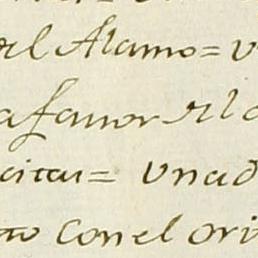 del Alamo = v
a favor del
citas = Una d
to con el ori